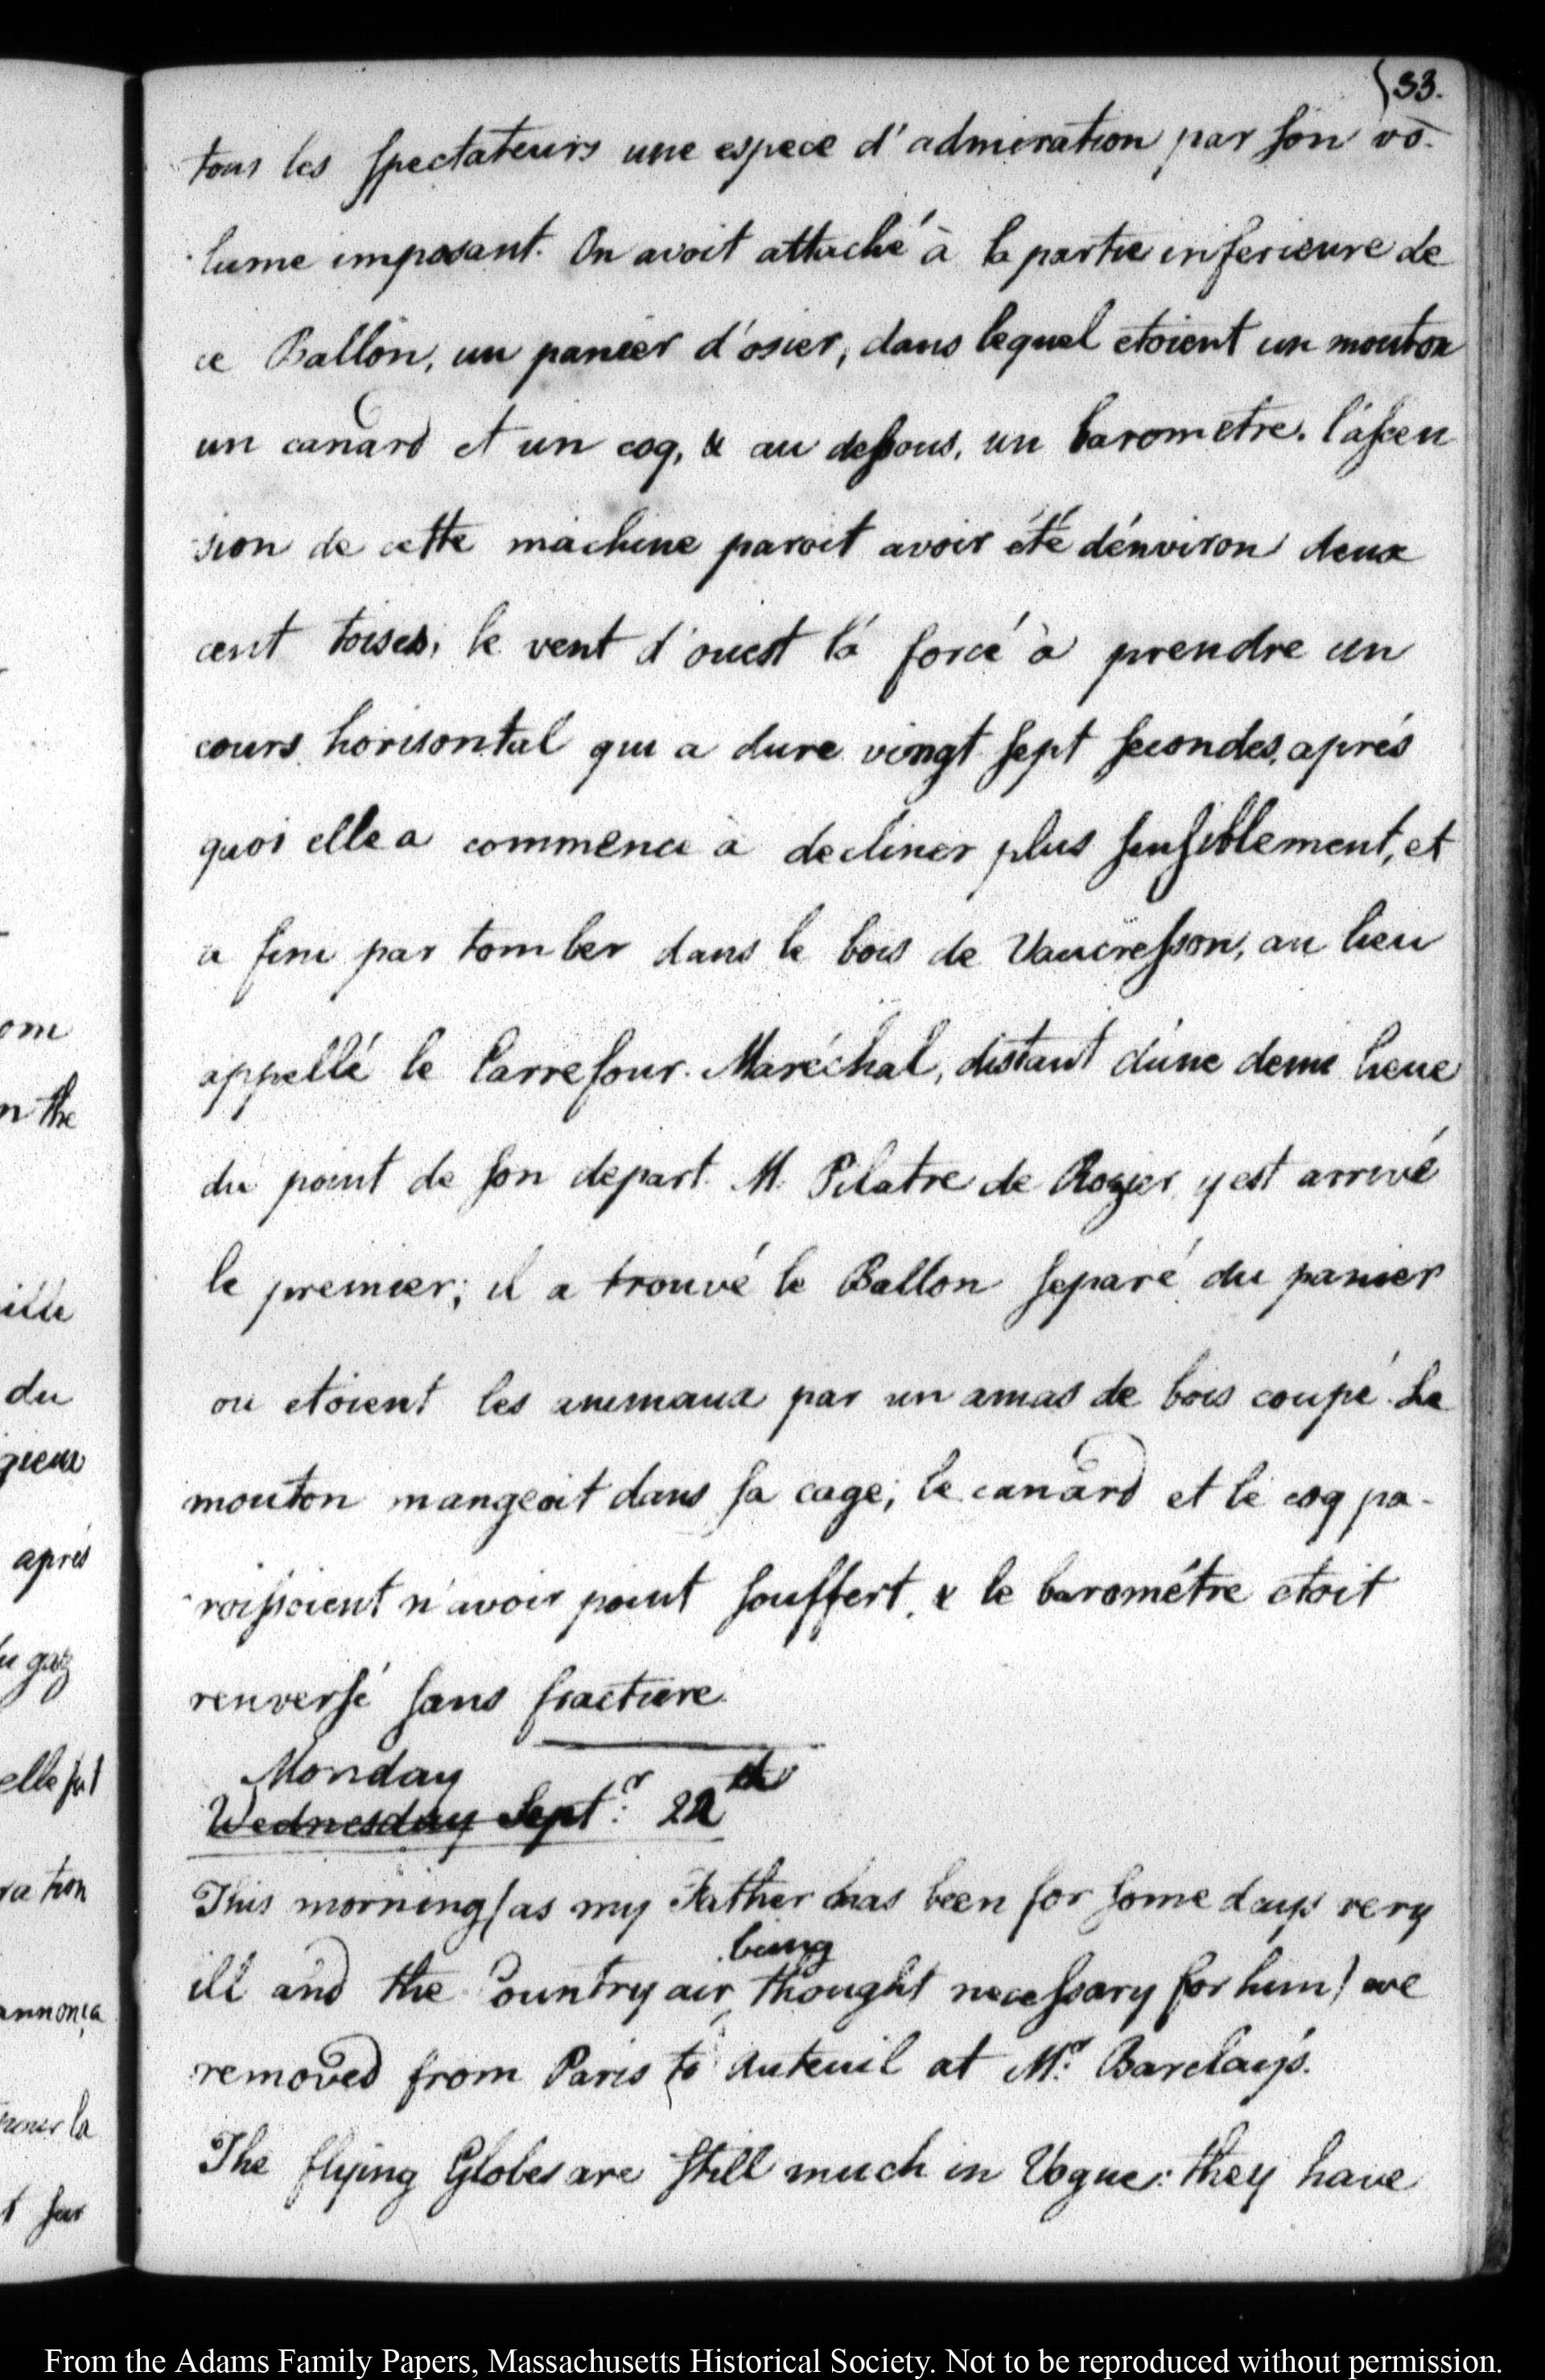 33.
tous les spectateurs une espece d'admiration par son vo-
lume imposant. On avoit attaché à la partie inferieure de
ce Ballon, un panier d'osier, dans lequel etoient un mouton
un canard et un coq, & au dessous, un barometre. l'ascen
sion de cette machine paroit avoir été d'environ deux
cent toises, le vent d'ouest l'a forcé à prendre un
cours horisontal qui a dure vingt sept secondes, aprés
quoi elle a commence à decliner plus sensiblement, et
a fini par tomber dans le bois de Vaucresson, au lieu
appellé le Carrefour Maréchal, distant d'une demi lieue
du point de son depart. M. Pilatre de Rozier y est arrivé
le premier; il a trouvé le Ballon separé du panier
ou etoient les animaux par un amas de bois coupé. Le
mouton mangeoit dans sa cage; le canard et le coq pa-
roissoient n'avoir point souffert, & le barométre etoit
renversé sans fracture.
Monday
Wednesday Septr: 22d
This morning (as my Father has been for some days very
being
ill and the Country air, thought necessary for him) we
removed from Paris to Auteuil at Mr. Barclay's.
The flying Globes are still much in Vogue: they have
om
n the
du
aprés
u gaz
elle fut
ration
annonça
pour la
t sur
From the Adams Family Papers, Massachusetts Historical Society. Not to be reproduced without permission.